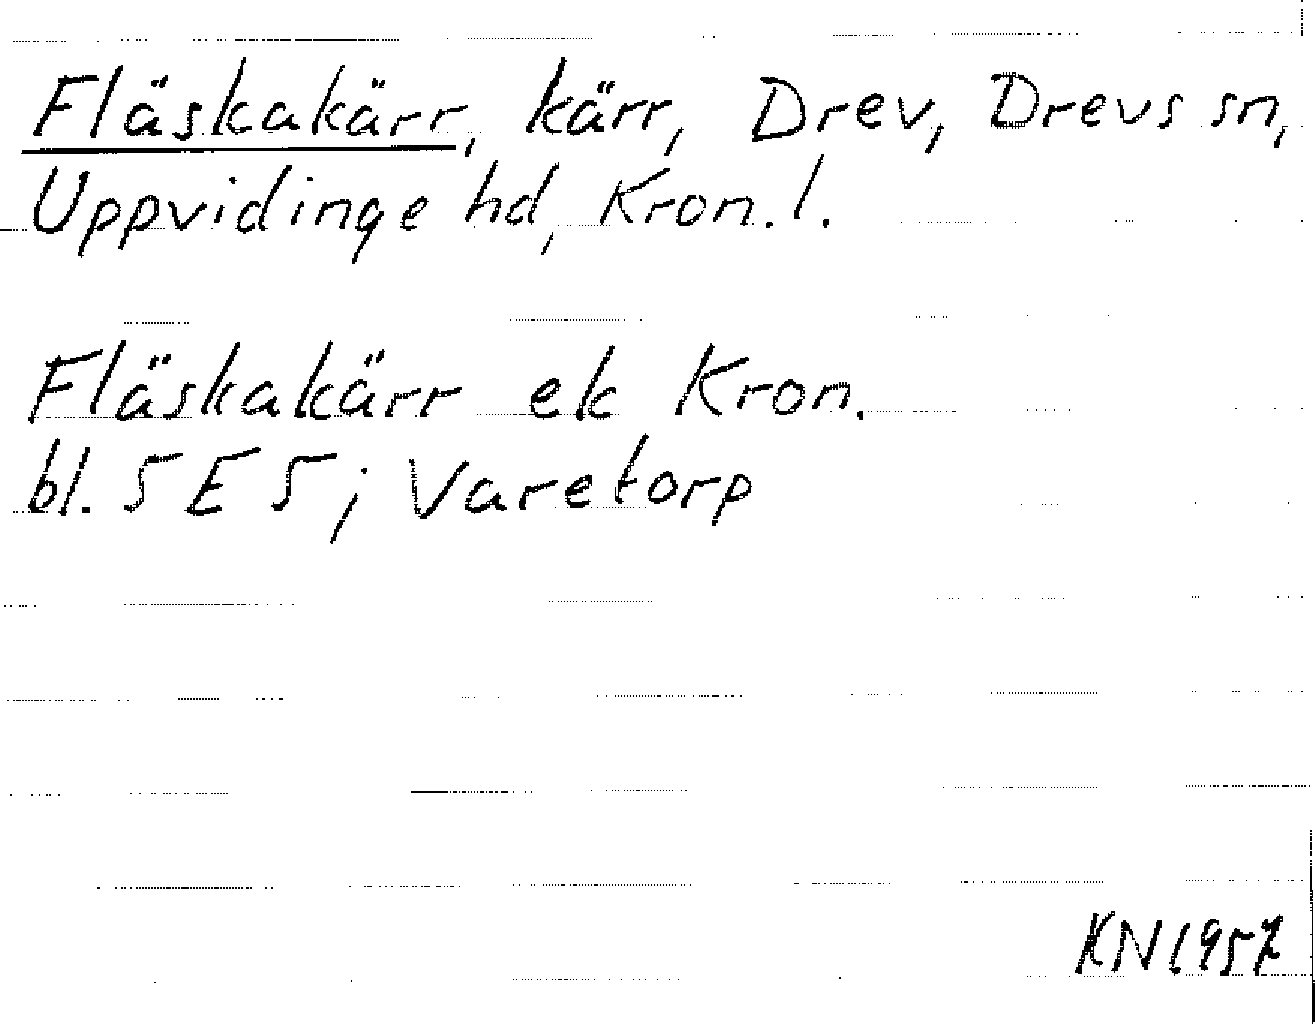 Fläskakärr, kärr, Drev, Drevs sn,
Uppvidinge hd, Kron. l.
Fläskakärr ek Kron.
bl. 5 E 5; Varetorp
KN 1957